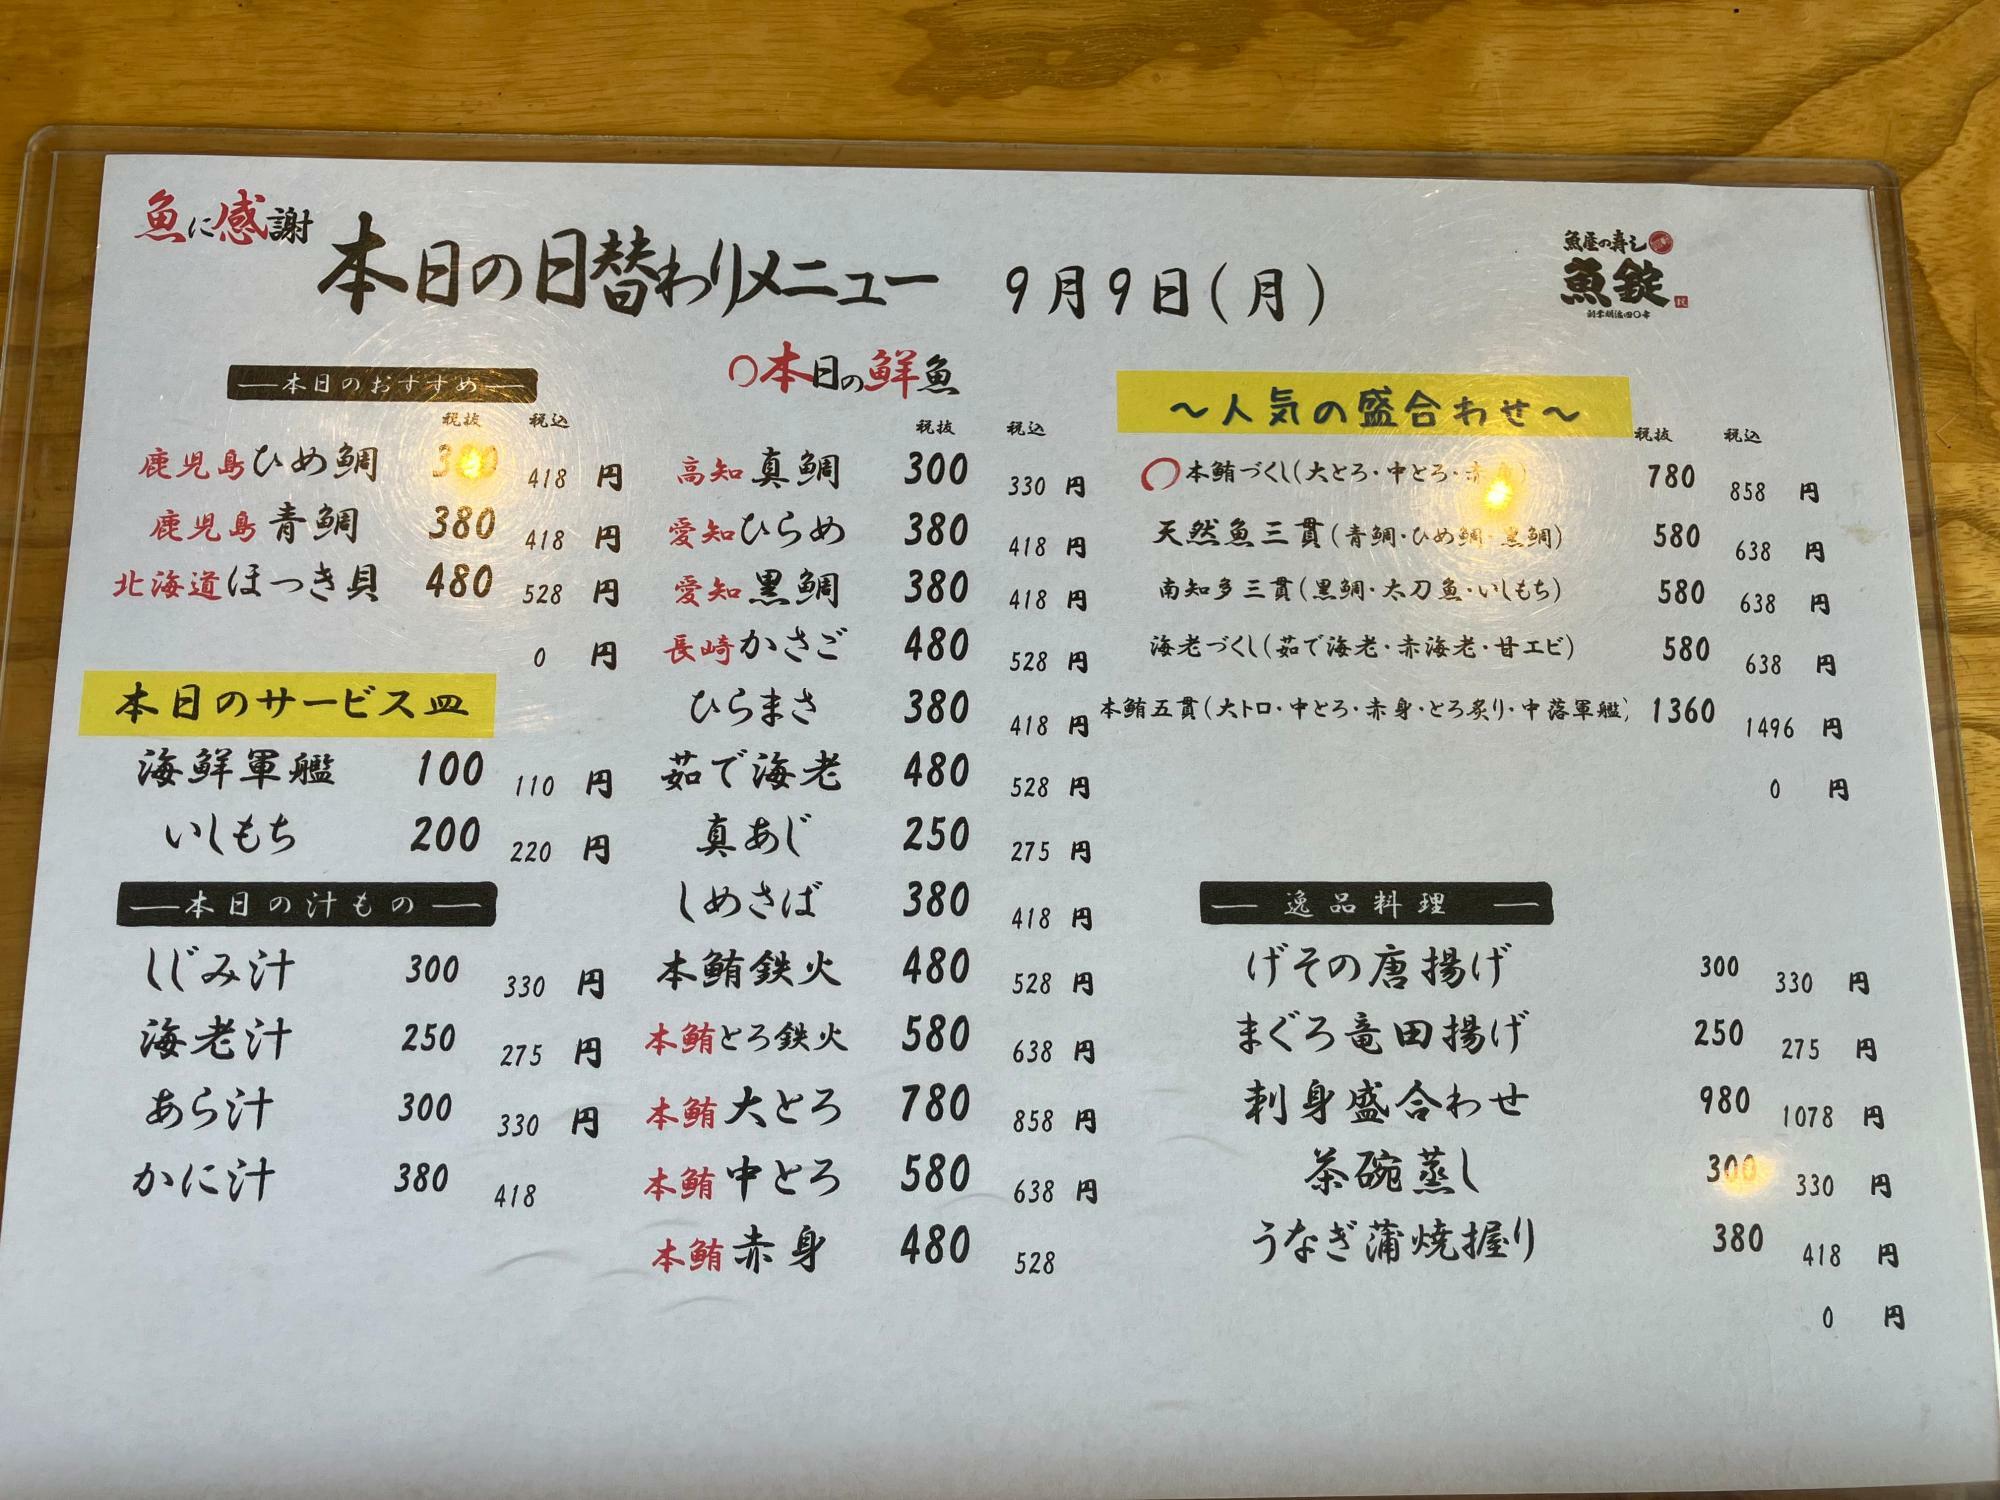 魚に感謝
本日の日替わりメニュー 9月9日(月)
魚屋の寿し
魚錠
創業明治四〇年
本日のおすすめ
税抜 税込
鹿児島ひめ鯛 380 418 円
鹿児島青鯛 380 418 円
北海道ほっき貝 480 528 円
0 円
本日のサービス皿
海鮮軍艦 100 110 円
いしもち 200 220 円
本日の汁もの
しじみ汁 300 330 円
海老汁 250 275 円
あら汁 300 330 円
かに汁 380 418
〇本日の鮮魚
税抜 税込
高知真鯛 300 330 円
愛知ひらめ 380 418 円
愛知黒鯛 380 418 円
長崎かさご 480 528 円
ひらまさ 380 418 円
茹で海老 480 528 円
真あじ 250 275 円
しめさば 380 418 円
本鮪鉄火 480 528 円
本鮪とろ鉄火 580 638 円
本鮪大とろ 780 858 円
本鮪中とろ 580 638 円
本鮪赤身 480 528
～人気の盛合わせ～
税抜 税込
〇本鮪づくし(大とろ・中とろ・赤身) 780 858 円
天然魚三貫(青鯛・ひめ鯛・黒鯛) 580 638 円
南知多三貫(黒鯛・太刀魚・いしもち) 580 638 円
海老づくし(茹で海老・赤海老・甘エビ) 580 638 円
本鮪五貫(大トロ・中とろ・赤身・とろ炙り・中落軍艦) 1360 1496 円
0 円
逸品料理
げその唐揚げ 300 330 円
まぐろ竜田揚げ 250 275 円
刺身盛合わせ 980 1078 円
茶碗蒸し 300 330 円
うなぎ蒲焼握り 380 418 円
0 円